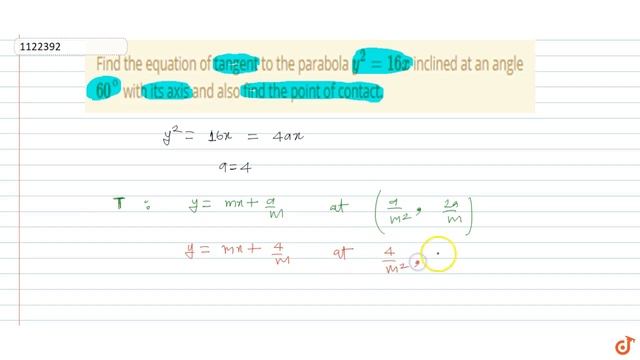 1122392
Find the equation of tangent to the parabola y² = 16x inclined at an angle
60° with its axis and also find the point of contact.
y² = 16x = 4ax
a = 4
T : y = mx + a/m at (a/m², 2a/m)
y = mx + 4/m at 4/m²,